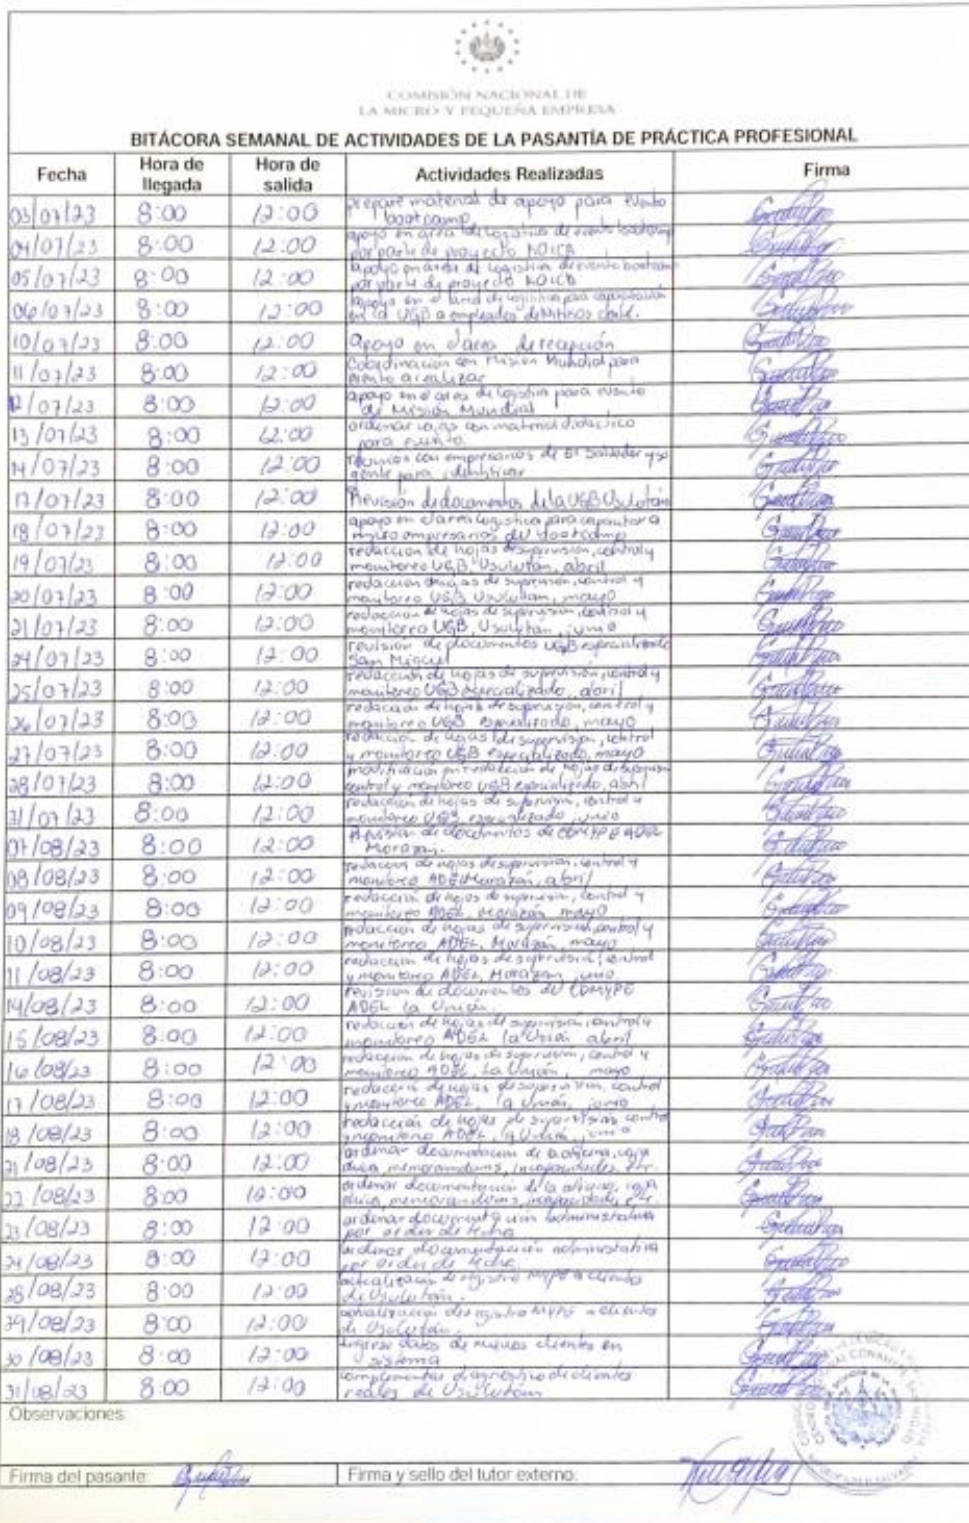 COMISIÓN NACIONAL DE
LA MICRO Y PEQUEÑA EMPRESA
BITÁCORA SEMANAL DE ACTIVIDADES DE LA PASANTÍA DE PRÁCTICA PROFESIONAL
Fecha Hora de llegada Hora de salida Actividades Realizadas Firma
03/07/23 8:00 12:00 prepare material de apoyo para evento
bootcamp
04/07/23 8:00 12:00 apoyo en area de logistica de evento bootcamp
por parte de proyecto KOICA
05/07/23 8:00 12:00 apoyo en area de logistica de evento bootcamp
por parte de proyecto KOICA
06/07/23 8:00 12:00 apoyo en el area de logistica para capacitación
en la UGB a empleados de
10/07/23 8:00 12:00 apoyo en el area de recepción
11/07/23 8:00 12:00 Coordinación con Misión Mundial para
evento a realizar
12/07/23 8:00 12:00 apoyo en el area de logistica para evento
de Misión Mundial
13/07/23 8:00 12:00 ordenar cajas con material didactico
para evento
14/07/23 8:00 12:00 reunion con empresarios de El Salvador y su
gente para identificar
17/07/23 8:00 12:00 Revisión de documentos de la UGB Usulután
18/07/23 8:00 12:00 apoyo en el area logistica para capacitar a
micro empresarios del bootcamp
19/07/23 8:00 12:00 redaccion de hojas de supervision, control y
monitoreo UGB, Usulután, abril
20/07/23 8:00 12:00 redaccion de hojas de supervision, control y
monitoreo UGB Usulután, mayo
21/07/23 8:00 12:00 redaccion de hojas de supervision, control y
monitoreo UGB, Usulután, junio
24/07/23 8:00 12:00 revision de documentos UGB especializado
San Miguel
25/07/23 8:00 12:00 redaccion de hojas de supervisión, control y
monitoreo UGB especializado, abril
26/07/23 8:00 12:00 redaccion de hojas de supervision, control y
monitoreo UGB especializado, mayo
27/07/23 8:00 12:00 redaccion de hojas de supervision, control
y monitoreo UGB especializado, mayo
28/07/23 8:00 12:00 modificacion en redacción de hojas de supervision
control y monitoreo UGB especializado, abril
31/07/23 8:00 12:00 redaccion de hojas de supervision, control y
monitoreo UGB especializado junio
07/08/23 8:00 12:00 Revisión de documentos de CDMYPE ADEL
Morazan.
08/08/23 8:00 12:00 redaccion de hojas de supervision, control y
monitoreo ADEL Morazán, abril
09/08/23 8:00 12:00 redacción de hojas de supervision, control y
monitoreo ADEL, Morazán mayo
10/08/23 8:00 12:00 redaccion de hojas de supervision, control y
monitoreo ADEL, Morazan, mayo
11/08/23 8:00 12:00 redaccion de hojas de supervision, control
y monitoreo ADEL, Morazan, junio
14/08/23 8:00 12:00 revision de documentos del CDMYPE
ADEL la Unión.
15/08/23 8:00 12:00 redaccion de hojas de supervision, control y
monitoreo ADEL la Unión abril
16/08/23 8:00 12:00 redaccion de hojas de supervision, control y
monitoreo ADEL, La Unión, mayo
17/08/23 8:00 12:00 redaccion de hojas de supervision, control
y monitoreo ADEL, la Unión, junio
18/08/23 8:00 12:00 redacción de hojas de supervision control
y monitoreo ADEL, la Unión, junio
21/08/23 8:00 12:00 ordenar documentacion de la oficina, caja
chica, memorandums, incapacidades, etc.
22/08/23 8:00 12:00 ordenar documentación de la oficina, caja
chica, memorandums, incapacidades, etc.
23/08/23 8:00 12:00 ordenar documentación administrativa
por orden de fecha
24/08/23 8:00 12:00 ordenar documentación administrativa
por orden de fecha.
28/08/23 8:00 12:00 actualización de registro MYPE a clientes
de Usulután.
29/08/23 8:00 12:00 actualización de registro MYPE a clientes
de Usulután.
30/08/23 8:00 12:00 ingrese datos de nuevos clientes en
sistema
31/08/23 8:00 12:00 complementar diagnostico de clientes
reales de Usulután
Observaciones:
Firma del pasante: Firma y sello del tutor externo: